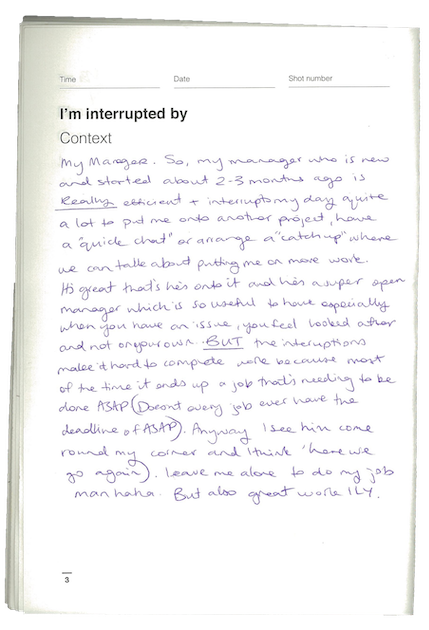 Time Date Shot number
I'm interrupted by
Context
My Manager. So, my manager who is new
and started about 2-3 months ago is
Really efficient + interrupts my day quite
a lot to put me onto another project, have
a "quick chat" or arrange a "catch up" where
we can talk about putting me on more work.
It's great that he's onto it and he's a super open
manager which is so useful to have especially
when you have an issue, you feel looked after
and not on your own. BUT the interruptions
make it hard to complete work because most
of the time it ends up a job that's needing to be
done ASAP (Doesn't every job ever have the
deadline of ASAP). Anyway I see him come
round my corner and I think 'here we
go again). Leave me alone to do my job
man haha. But also great work ILY.
3